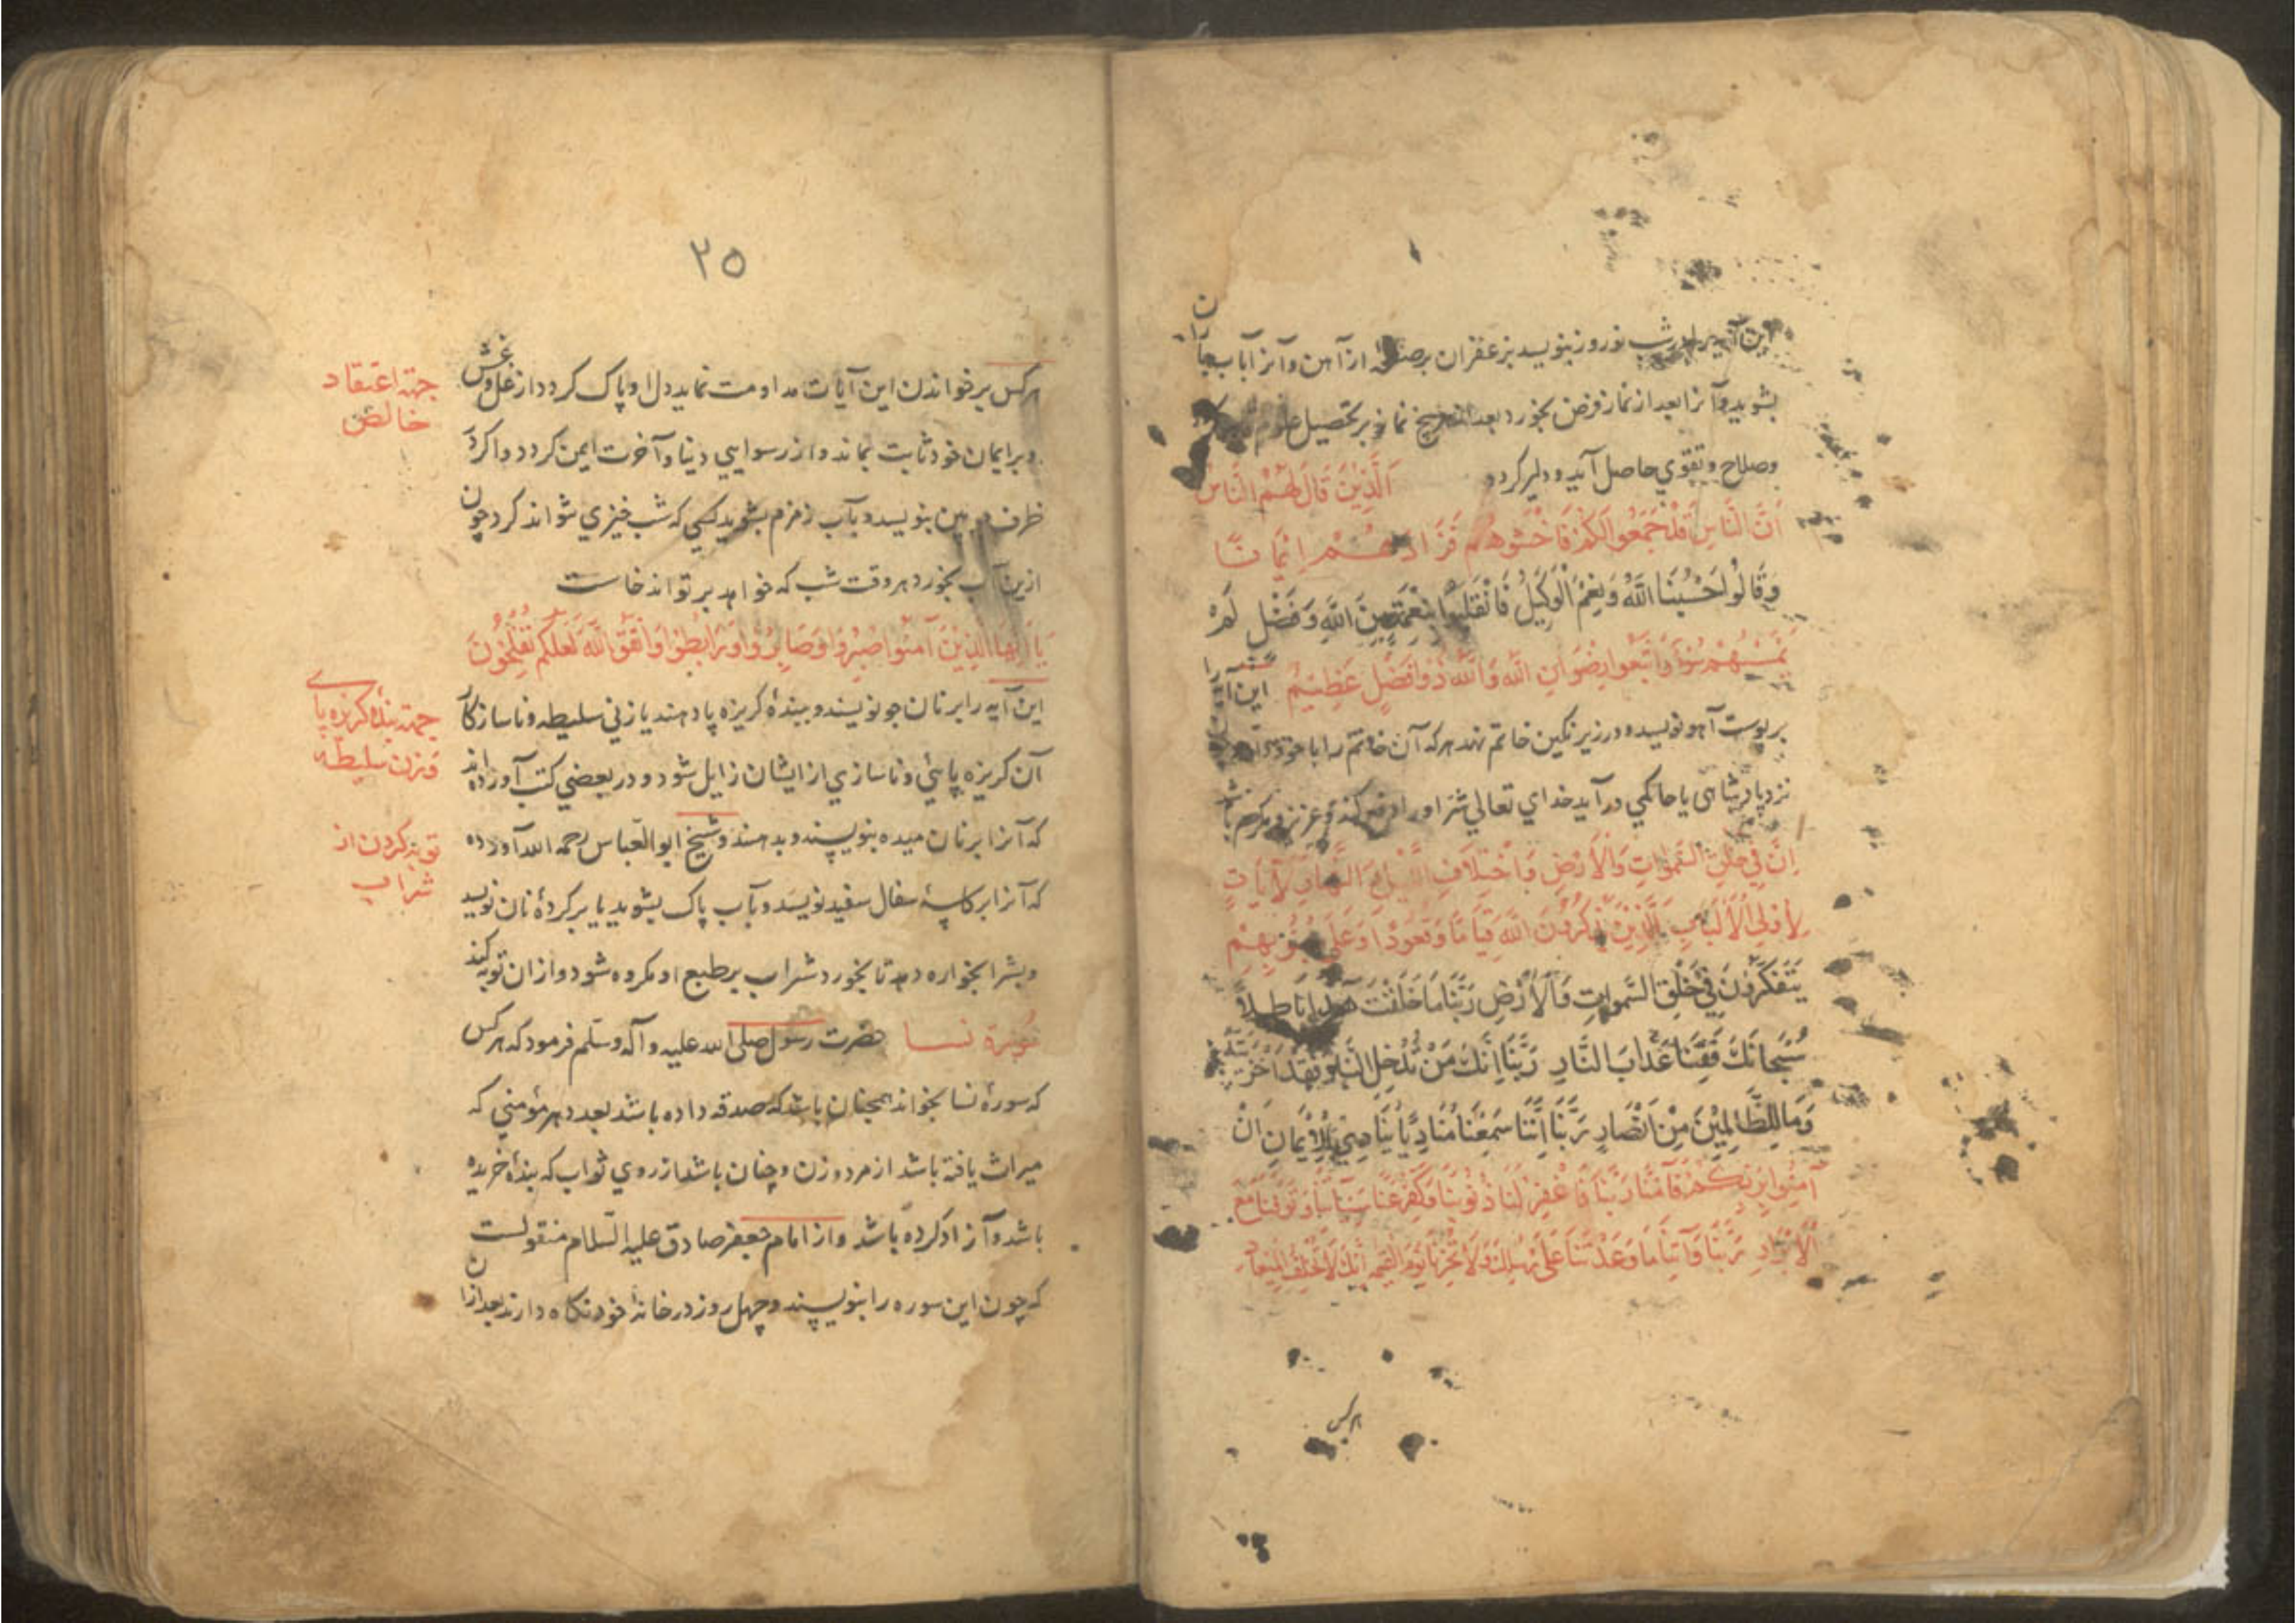 این آیه را در شب نوروز بنویسد بزعفران بر صفحه از آهن و آنرا بآب باران
بشوید و آنرا بعد از نماز فرض بخورد بعد از پنج نماز بر تحصیل علوم
وصلاح وتقوي حاصل آید و دلیر گردد اَلَّذِیْنَ قَالَ لَهُمُ النَّاسُ
اَنَّ النَّاسَ قَدْ جَمَعُوا لَكُمْ فَاخْشَوْهُمْ فَزَادَهُمْ اِیْمَانًا
وَقَالُوا حَسْبُنَا اللّٰهُ وَنِعْمَ الْوَكِیلُ فَانْقَلَبُوا بِنِعْمَةٍ مِنَ اللّٰهِ وَفَضْلٍ لَمْ
یَمْسَسْهُمْ سُوءٌ وَاتَّبَعُوا رِضْوَانَ اللّٰهِ وَاللّٰهُ ذُوا فَضْلٍ عَظِیْمٍ این آیه را
بر پوست آهو نویسد و در زیر نگین خاتم نهد هر که آن خاتم را با خود دارد
نزد پادشاهی یا حاکمي در آید خداي تعالي شر او را دفع کند و عزیز و مکرم باشد
اِنَّ فِي خَلْقِ السَّمٰوَاتِ وَالْاَرْضِ وَاخْتِلَافِ اللَّیْلِ وَالنَّهَارِ لَآیَاتٍ
لِاُولِي الْاَلْبَابِ اَلَّذِیْنَ یَذْكُرُوْنَ اللّٰهَ قِیَامًا وَقُعُوْدًا وَعَلَی جُنُوْبِهِمْ
یَتَفَكَّرُوْنَ فِي خَلْقِ السَّمٰوَاتِ وَالْاَرْضِ رَبَّنَا مَا خَلَقْتَ هٰذَا بَاطِلًا
سُبْحَانَكَ فَقِنَا عَذَابَ النَّارِ رَبَّنَا اِنَّكَ مَنْ تُدْخِلِ النَّارَ فَقَدْ اَخْزَیْتَهُ
وَمَا لِلظَّالِمِیْنَ مِنْ اَنْصَارٍ رَبَّنَا اِنَّنَا سَمِعْنَا مُنَادِیًا یُنَادِي لِلْاِیْمَانِ اَنْ
آمِنُوا بِرَبِّكُمْ فَآمَنَّا رَبَّنَا فَاغْفِرْ لَنَا ذُنُوْبَنَا وَكَفِّرْ عَنَّا سَیِّئَاتِنَا وَتَوَفَّنَا مَعَ
الْاَبْرَارِ رَبَّنَا وَآتِنَا مَا وَعَدْتَنَا عَلَی رُسُلِكَ وَلَا تُخْزِنَا یَوْمَ الْقِیٰمَةِ اِنَّكَ لَا تُخْلِفُ الْمِیْعَادَ
هرکس
۲۵
هرکس بر خواندن این آیات مداومت نماید دل او پاک گردد از غل وغش
جهة اعتقاد
خالص
وبر ایمان خود ثابت بماند و از رسوایي دنیا و آخرت ایمن گردد و اگر در
ظرف بنویسد و بآب زمزم بشوید کسي که شب خیزي نتواند کرد چون
ازین آب بخورد هر وقت شب که خواهد بر تواند خاست
یَا اَیُّهَا الَّذِیْنَ آمَنُوا اصْبِرُوْا وَصَابِرُوْا وَرَابِطُوْا وَاتَّقُوا اللّٰهَ لَعَلَّكُمْ تُفْلِحُوْنَ
این آیه را بر نان جو نویسند و ببندۀ گریزه پا دهند یا زني سلیطه و ناسازگار
جهة بندۀ گریزه پاے
وزن سلیطه
آن گریزه پایئ و ناسازي از ایشان زایل شود و در بعضي کتب آورده اند
که آنرا بر نان میده بنویسند و بدهند و شیخ ابو العباس رحمه الله آورده
توبه کردن از
شراب
که آنرا بر کاسۀ سفال سفید نویسد و بآب پاک بشوید یا بر گردۀ نان نویسد
وبشرابخواره دهد تا بخورد شراب بر طبع او مکروه شود و از ان توبه کند
سُوْرَة نسا حضرت رسول صلی الله علیه وآله وسلّم فرمود که هرکس
که سورۀ نسا بخواند همچنان باشد که صدقه داده باشد بعدد هر مؤمني که
میراث یافته باشد از مرد و زن و چنان باشد از روي ثواب که بندۀ خریده
باشد و آزاد کرده باشد و از امام جعفر صادق علیه السّلام منقولست
که چون این سوره را بنویسند و چهل روز در خانۀ خود نگاه دارند بعد از ان